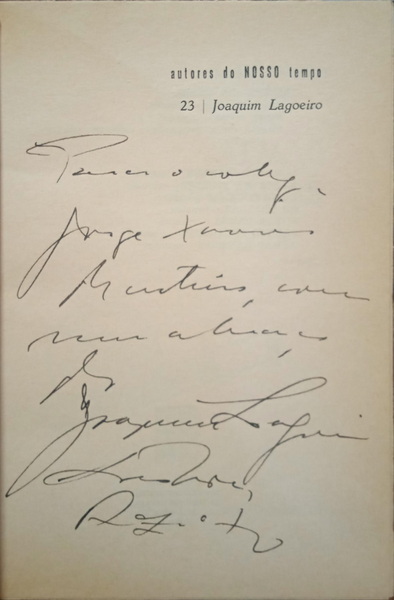 autores do NOSSO tempo
23 | Joaquim Lagoeiro
Para o colega
Jorge Xavier
Monteiro, com
um abraço
do
Joaquim Lagoeiro